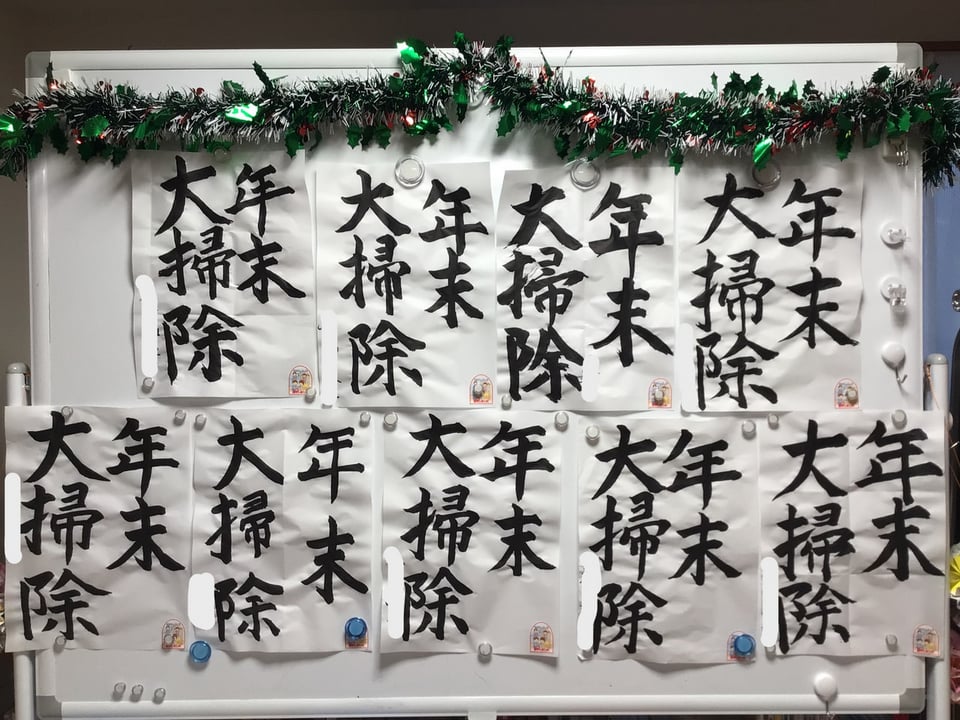 年末
大掃除
年末
大掃除
年末
大掃除
年末
大掃除
年末
大掃除
年末
大掃除
年末
大掃除
年末
大掃除
年末
大掃除